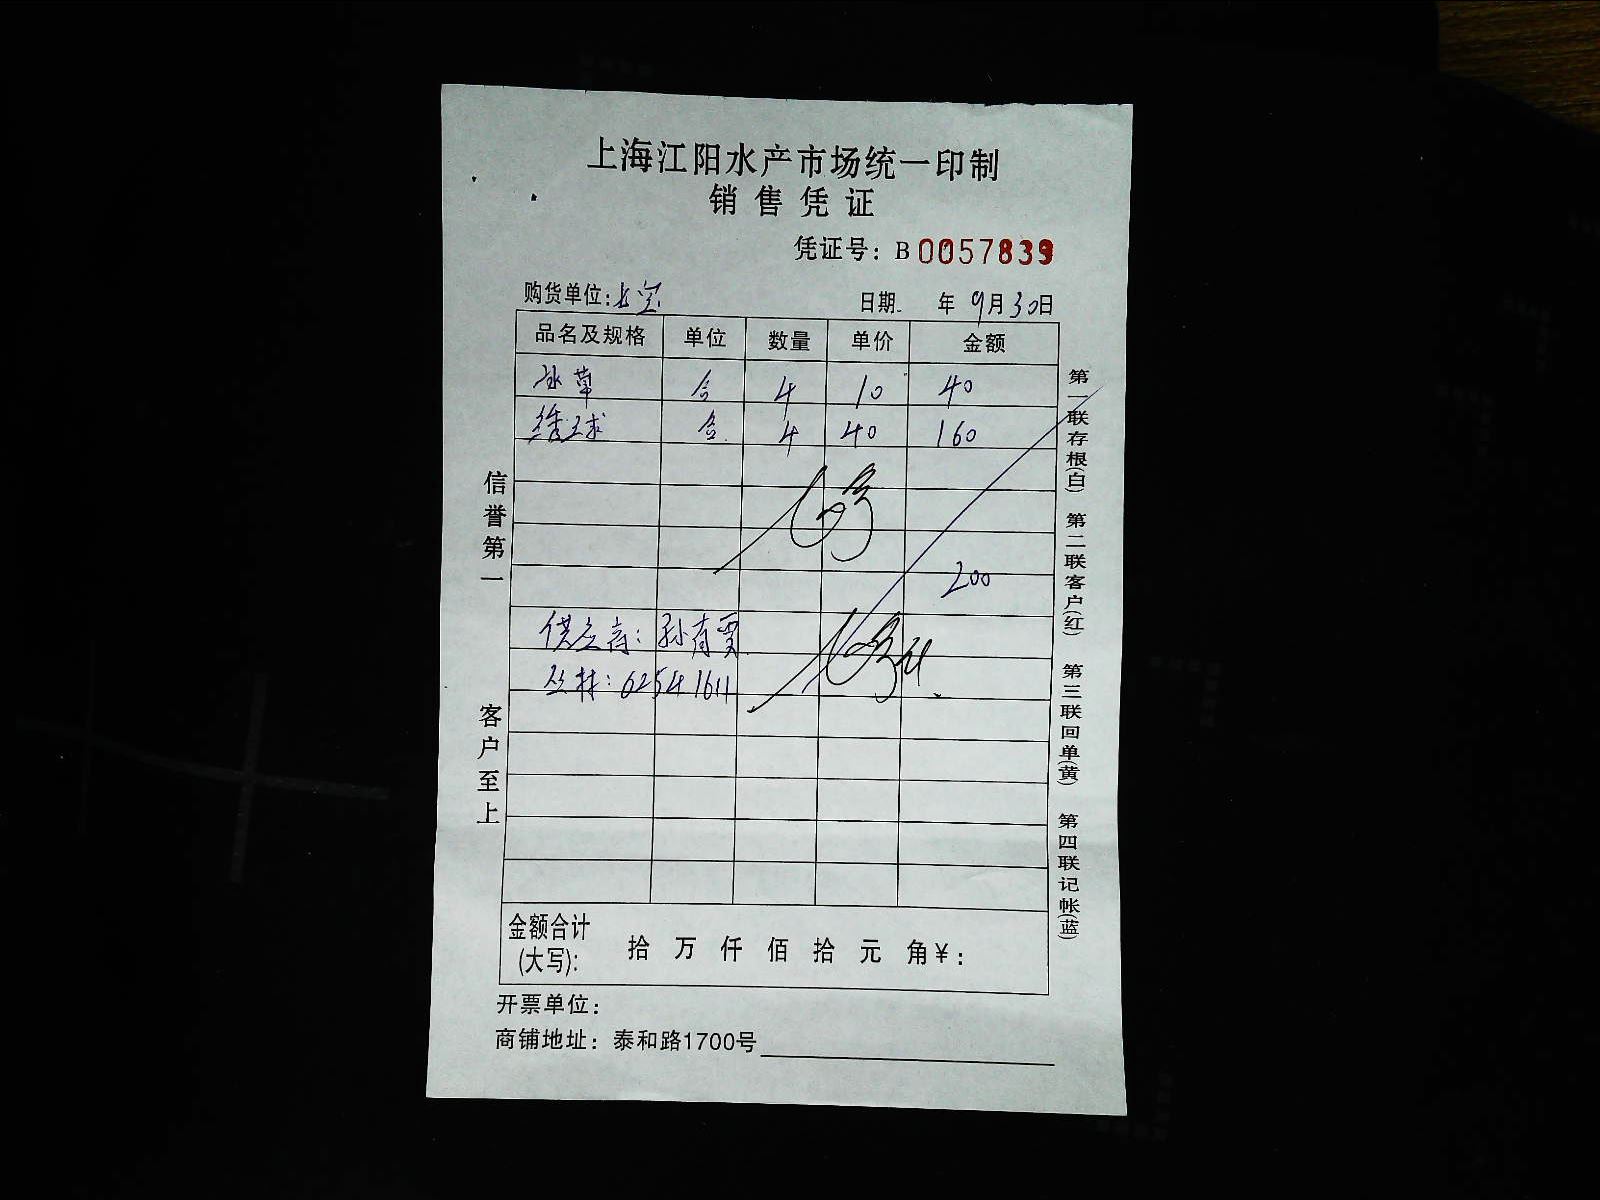 上海江阳水产市场统一印制
销售凭证
凭证号：B 0057839
购货单位：长宝
日期 年 9月30日
品名及规格 单位 数量 单价 金额
冰草 合 4 10 40
绣球 合 4 40 160
200
供应商：孙有贾
丛林：62541611
信誉第一
客户至上
第一联存根(白) 第二联客户(红) 第三联回单(黄) 第四联记帐(蓝)
金额合计
(大写): 拾 万 仟 佰 拾 元 角 ¥:
开票单位：
商铺地址：泰和路1700号